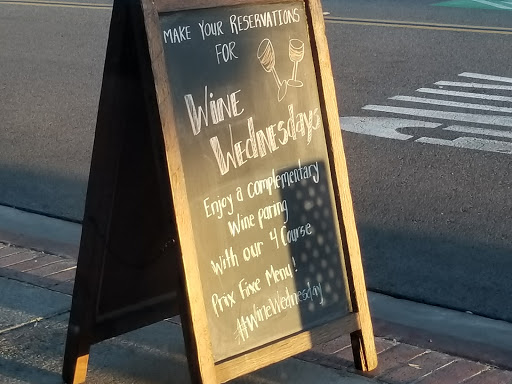 MAKE YOUR RESERVATIONS
FOR
Wine
Wednesdays
Enjoy a complementary
Wine paring
with our 4 Course
Prix Fixe Menu!
#WineWednesday